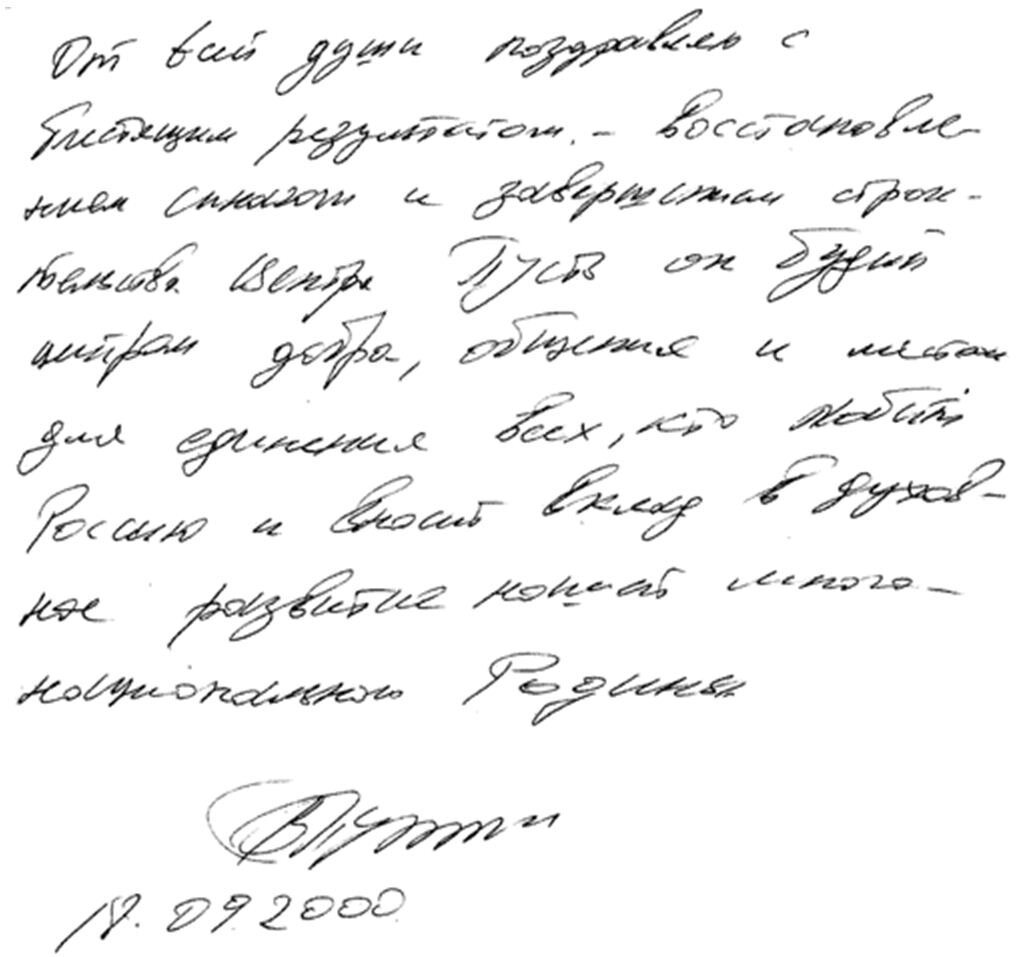 От всей души поздравляю с
блестящим результатом. – восстановле-
нием синагоги и завершением строи-
тельства Центра Пусть он будет
центром добра, общения и местом
для единения всех, кто любит
Россию и вносит вклад в духов-
ное развитие нашей много-
национальной Родины
ВПутин
18.09.2000